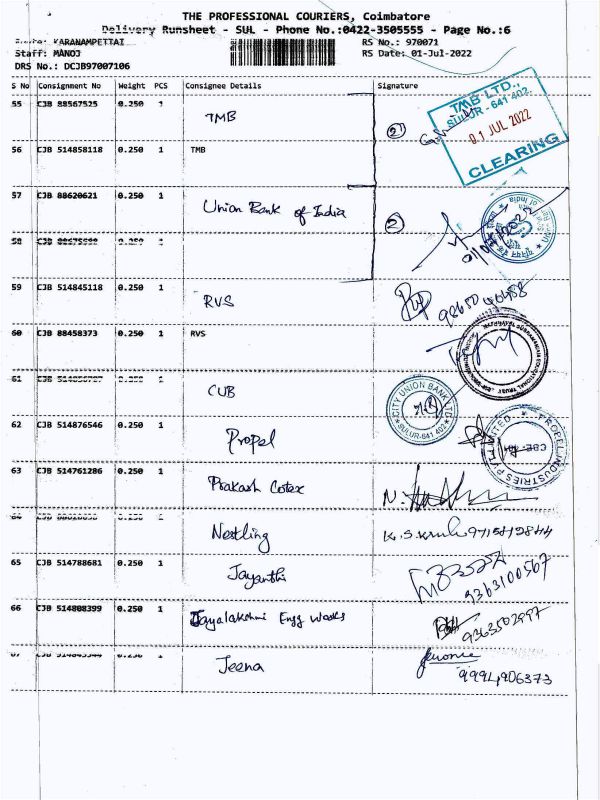 THE PROFESSIONAL COURIERS, Coimbatore
Delivery Runsheet - SUL - Phone No.:0422-3505555 - Page No.:6
KARANAMPETTAI
RS No.: 970071
Staff: MANOJ
RS Date: 01-Jul-2022
DRS No.: DCJB97007106
S No Consignment No Weight PCS Consignee Details Signature
55 CJB 88567525 0.250 1 TMB
TMB LTD.,
SULUR - 641 402.
01 JUL 2022
CLEARING
2
56 CJB 514858118 0.250 1 TMB
57 CJB 88620621 0.250 1 Union Bank of India
2
58 CJB 0.250
59 CJB 514845118 0.250 1 RVS
60 CJB 88458373 0.250 1 RVS
61 CJB CUB
CITY UNION BANK LTD
SULUR-641 402
62 CJB 514876546 0.250 1 Propel
PROPEL INDUSTRIES
CBE
63 CJB 514761286 0.250 1 Prakash Cotex
Nestling
65 CJB 514788681 0.250 1 Jayanthi
9363100567
66 CJB 514808399 0.250 1 Jayalakshmi Engg Works
9363502997
Jeena
9994906373